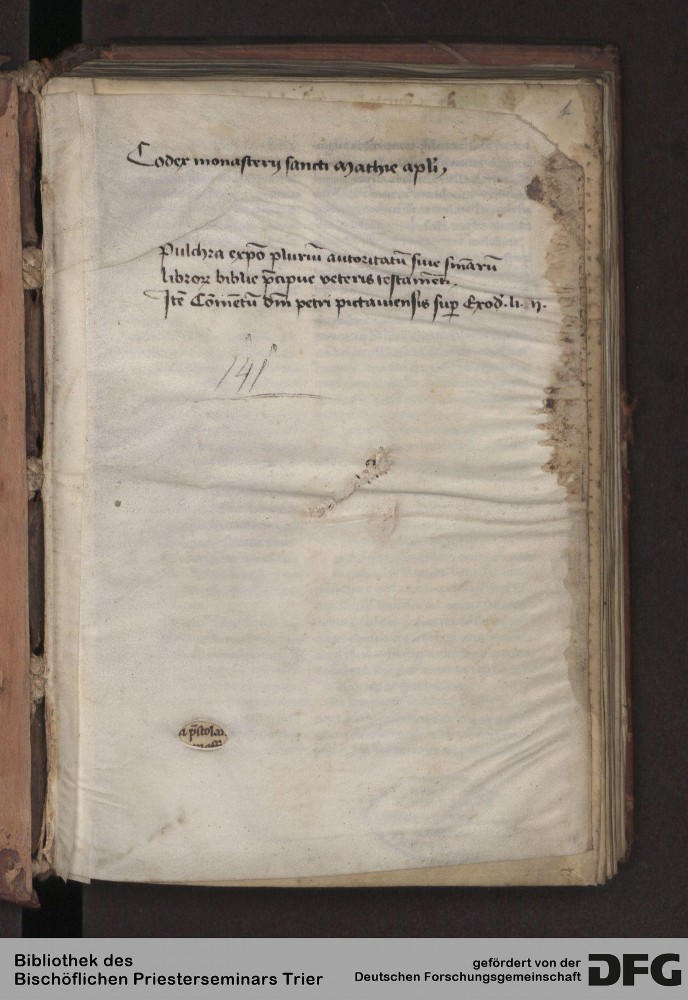 1
Codex monasterij sancti Mathie apli,
Pulchra expō pluriū autoritatū siue sm̄arū
libroꝝ biblie p̄cipue veteris testam̄eti.
Itē Cōmētū dm̄ petri pictauiensis sup̱ Exod. li. ij.
141
Bibliothek des
Bischöflichen Priesterseminars Trier
gefördert von der
Deutschen Forschungsgemeinschaft
DFG